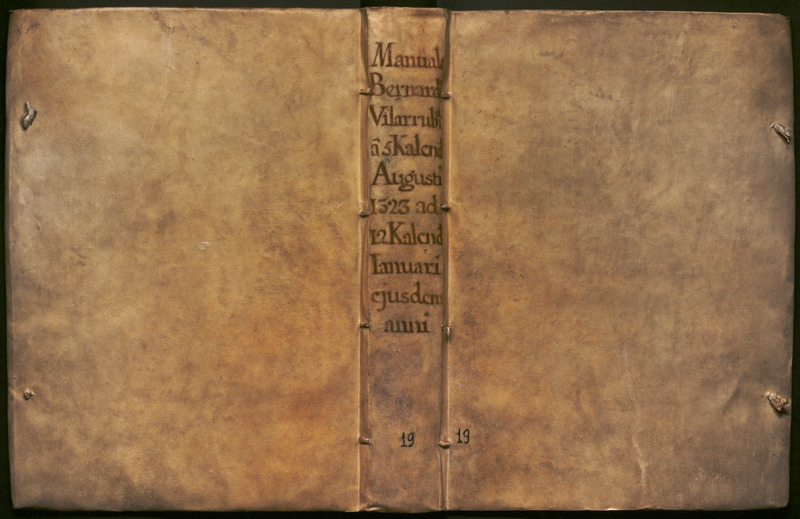 Manual
Bernard
Vilarrub
à 5 Kalend
Augusti
1323 ad
12 Kalend
Ianuari
ejusdem
anni
19
19